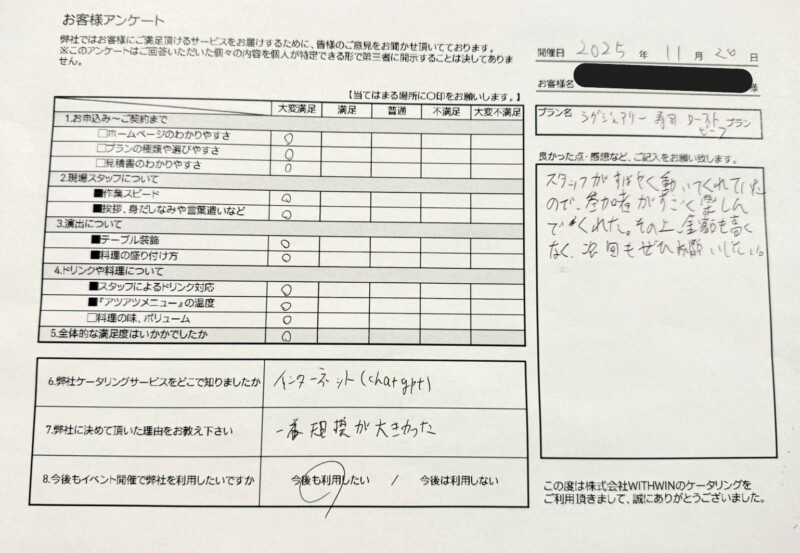 お客様アンケート
弊社ではお客様にご満足頂けるサービスをお届けするために、皆様のご意見をお聞かせ頂いております。
※このアンケートはご回答いただいた個々の内容を個人が特定できる形で第三者に開示することは決してありません。
開催日 2025 年 11 月 20 日
お客様名 様
プラン名 ラグジュアリー 寿司 ローストビーフ プラン
【当てはまる場所に○印をお願いします。】
大変満足 満足 普通 不満足 大変不満足
1.お申込み～ご契約まで
□ホームページのわかりやすさ ○
□プランの種類や選びやすさ ○
□見積書のわかりやすさ ○
2.現場スタッフについて
■作業スピード ○
■挨拶、身だしなみや言葉遣いなど ○
3.演出について
■テーブル装飾 ○
■料理の盛り付け方 ○
4.ドリンクや料理について
■スタッフによるドリンク対応 ○
■『アツアツメニュー』の温度 ○
□料理の味、ボリューム ○
5.全体的な満足度はいかがでしたか ○
良かった点・感想など、ご記入をお願い致します。
スタッフがすばやく動いてくれていた
ので、参加者がすごく楽しん
でくれた。その上、金額も高く
なく、次回もぜひお願いしたい。
6.弊社ケータリングサービスをどこで知りましたか インターネット(chatgpt)
7.弊社に決めて頂いた理由をお教え下さい 一番規模が大きかった
8.今後もイベント開催で弊社を利用したいですか 今後も利用したい / 今後は利用しない
この度は株式会社WITHWINのケータリングを
ご利用頂きまして、誠にありがとうございました。